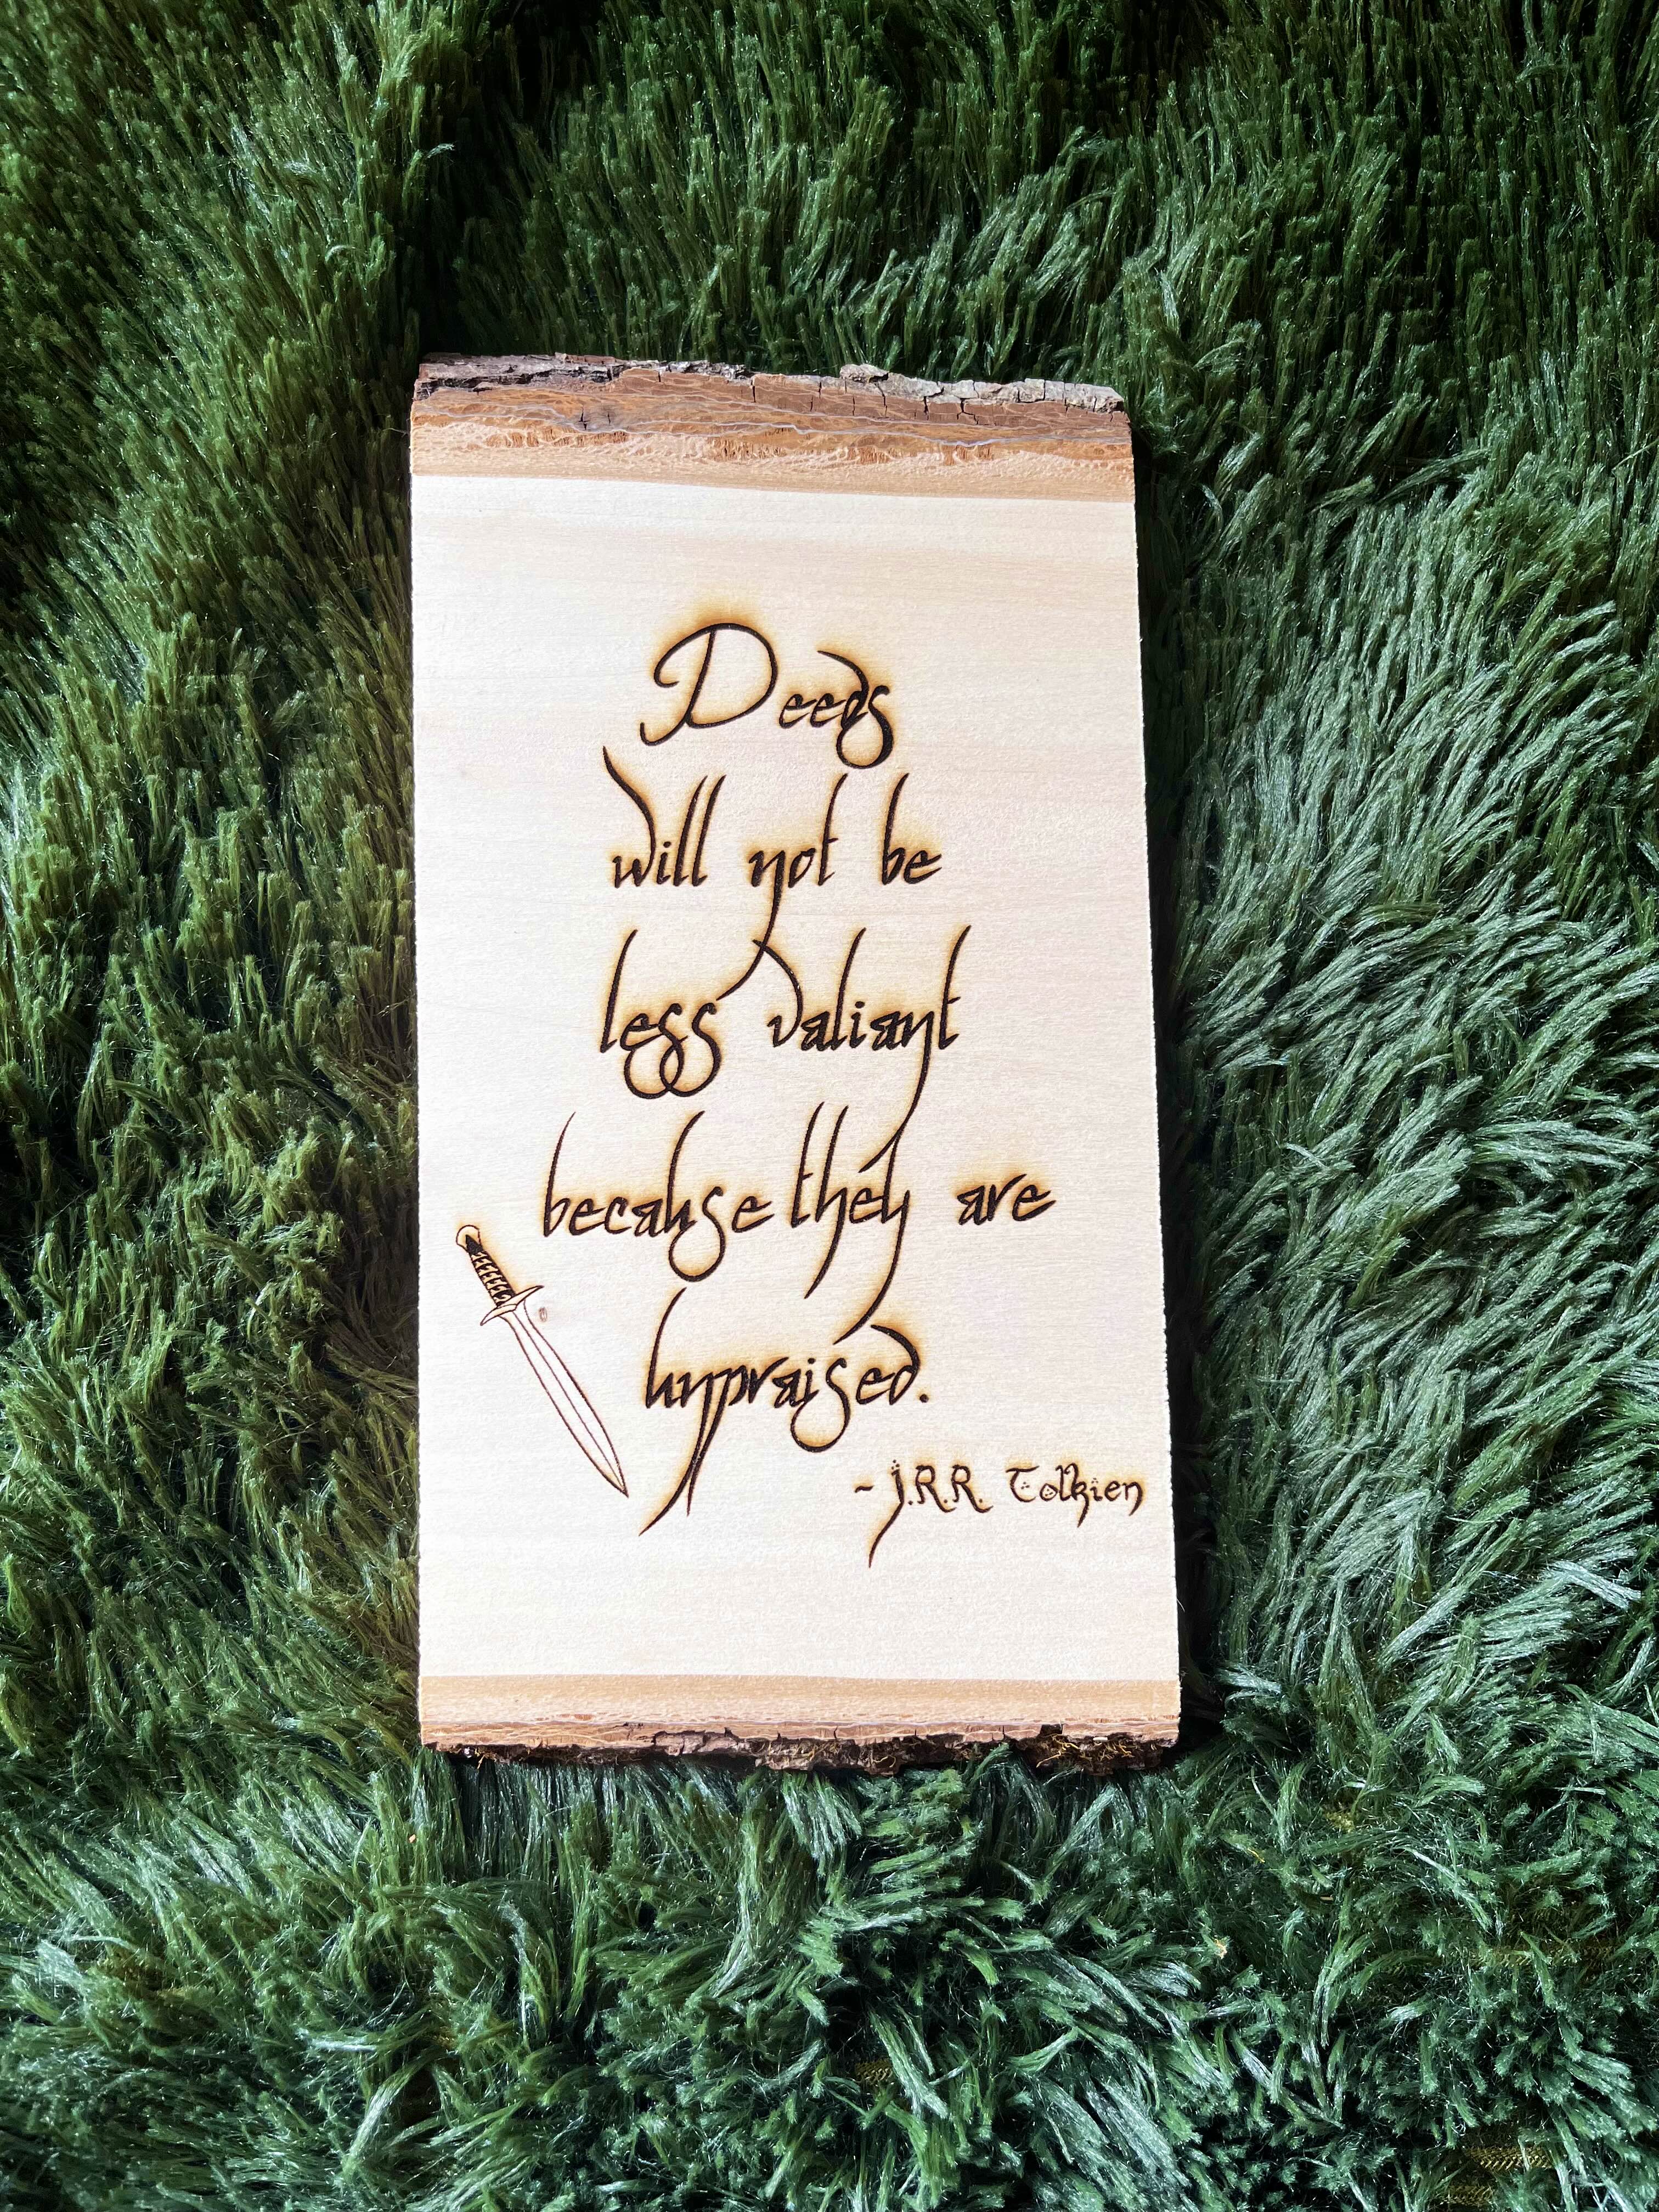 Deeds
will not be
less valiant
because they are
unpraised.
- J.R.R. Tolkien